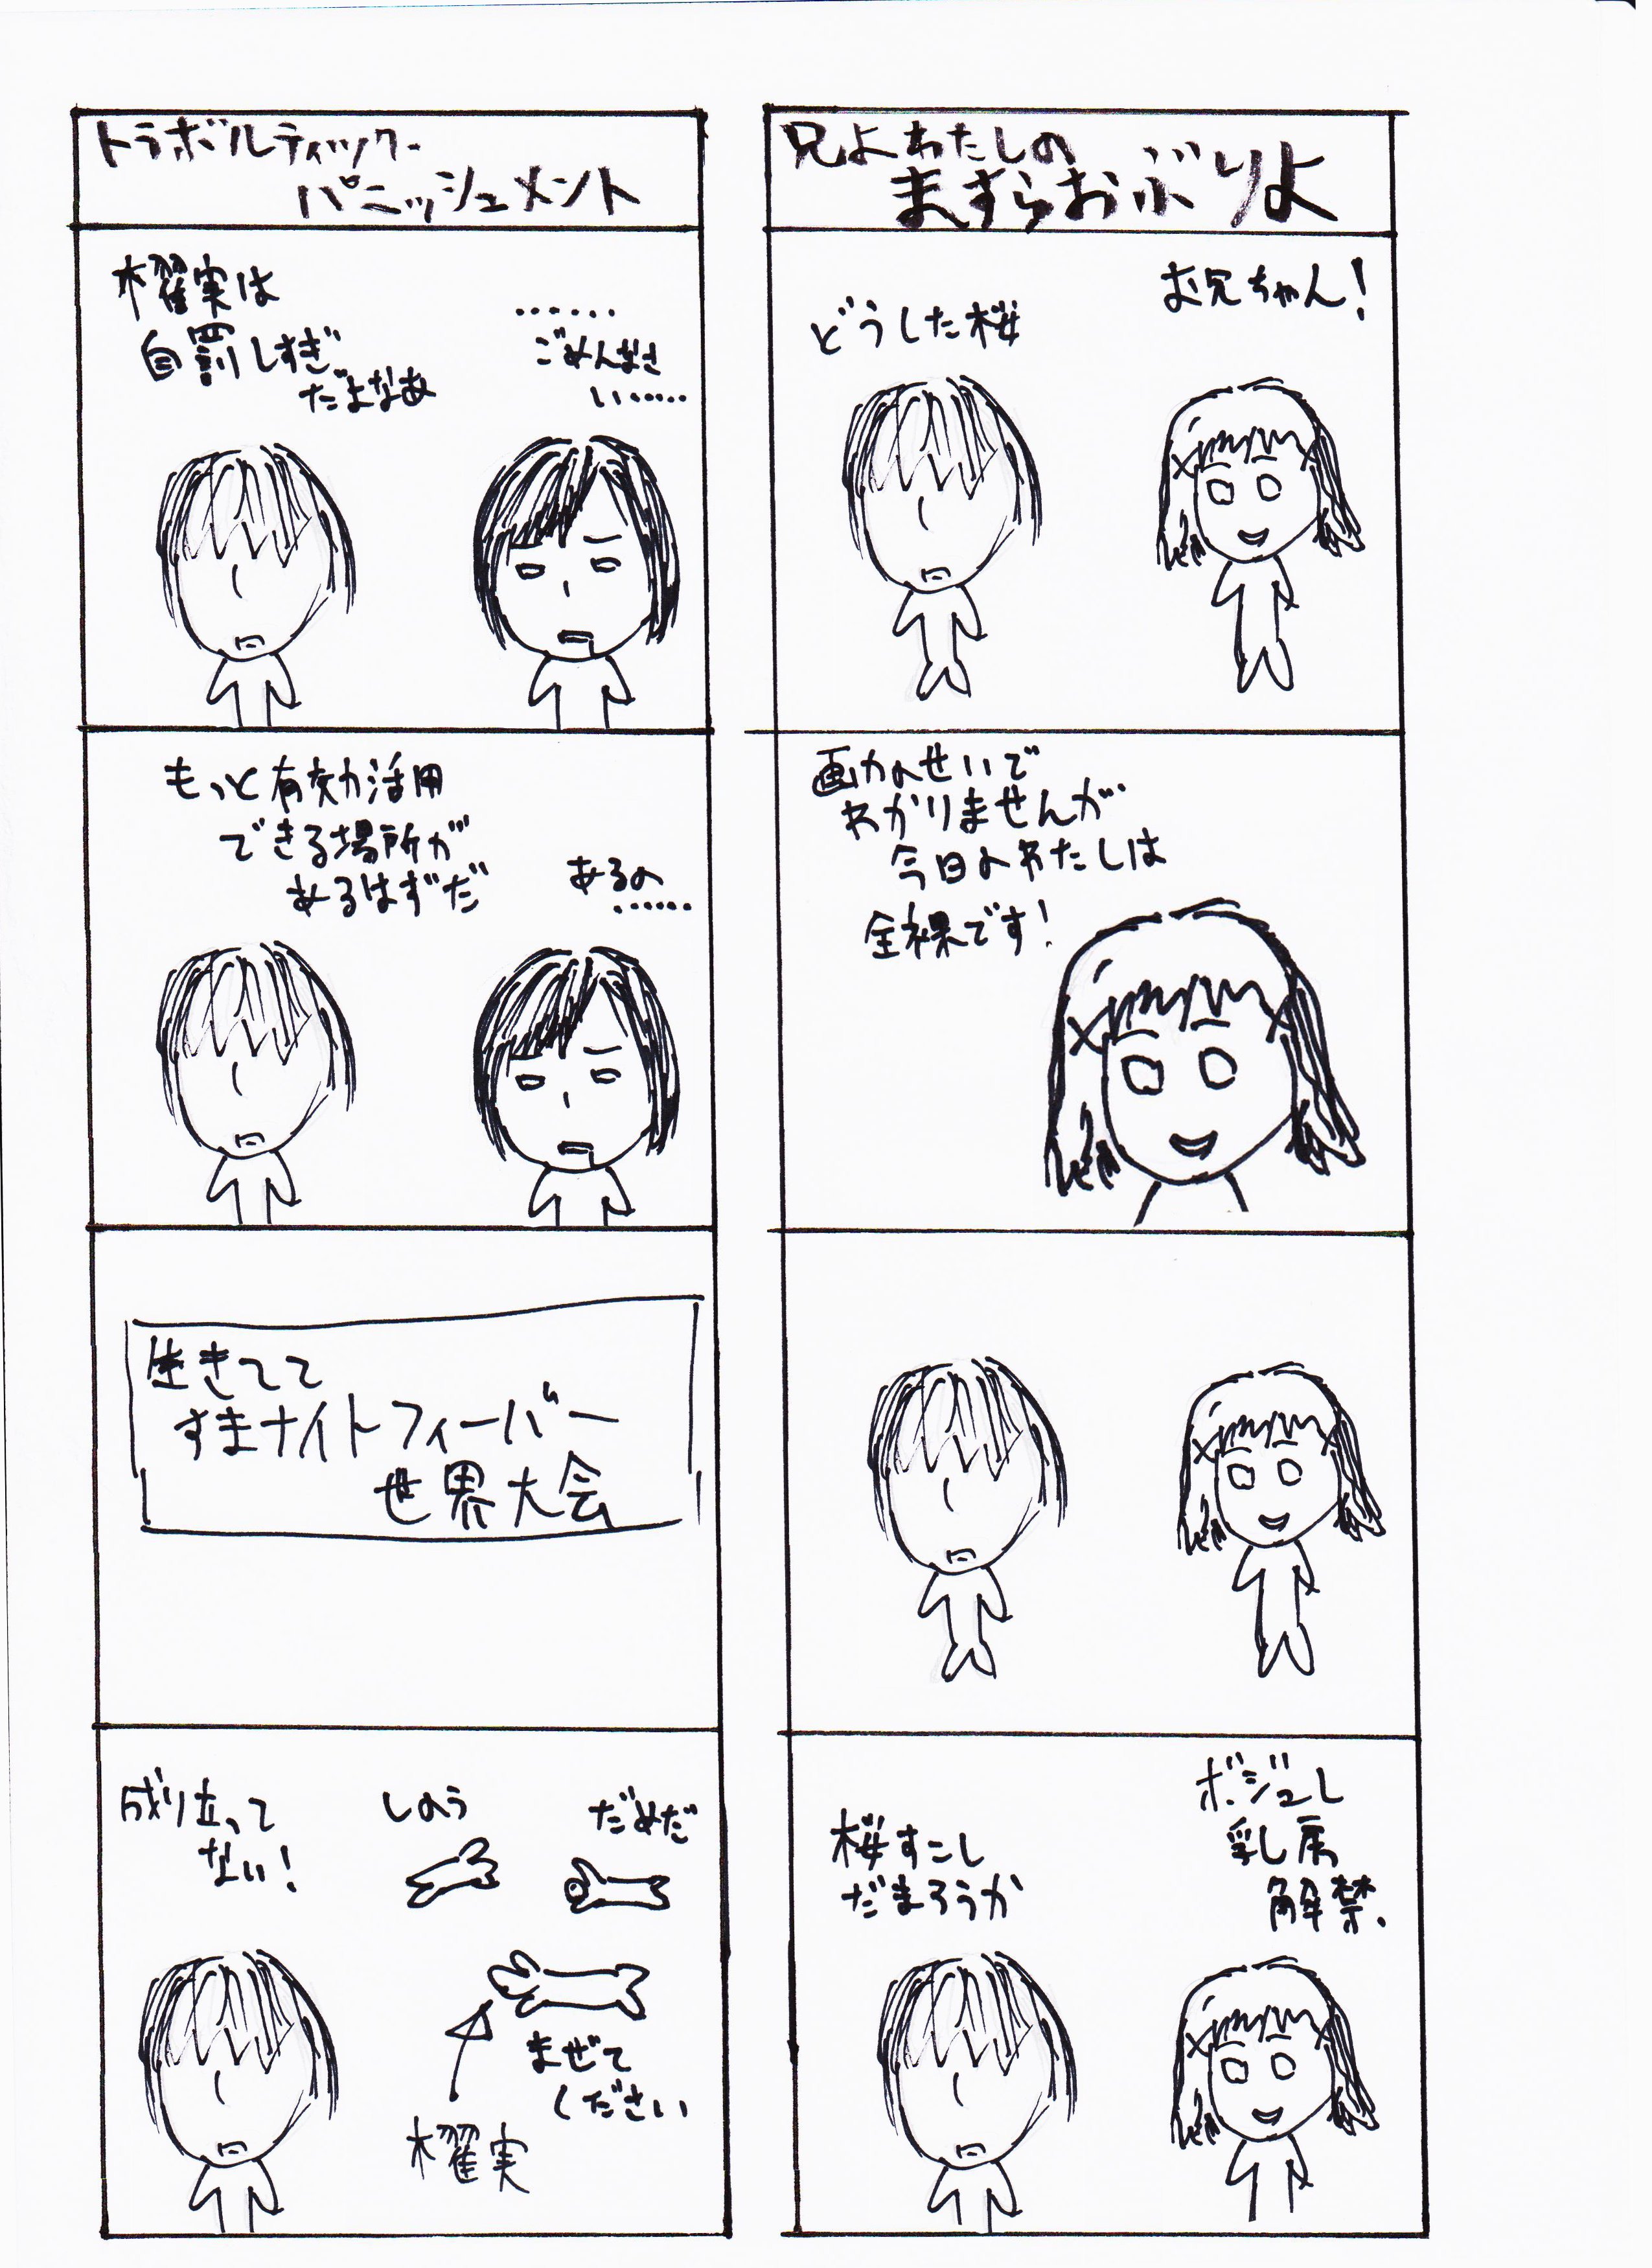 兄よわたしの
ますらおぶりよ
お兄ちゃん!
どうした桜
画力のせいで
わかりませんが
今日のわたしは
全裸です!
ボジョレ
乳房
解禁.
桜すこし
だまろうか
トラボルティック・
パニッシュメント
櫂実は
自罰しすぎ
だよなあ
……
ごめんなさ
い……
もっと有効活用
できる場所が
あるはずだ
あるの
……
生きてて
すまナイトフィーバー
世界大会
成り立って
ない!
しのう
だめだ
まぜて
ください
櫂実